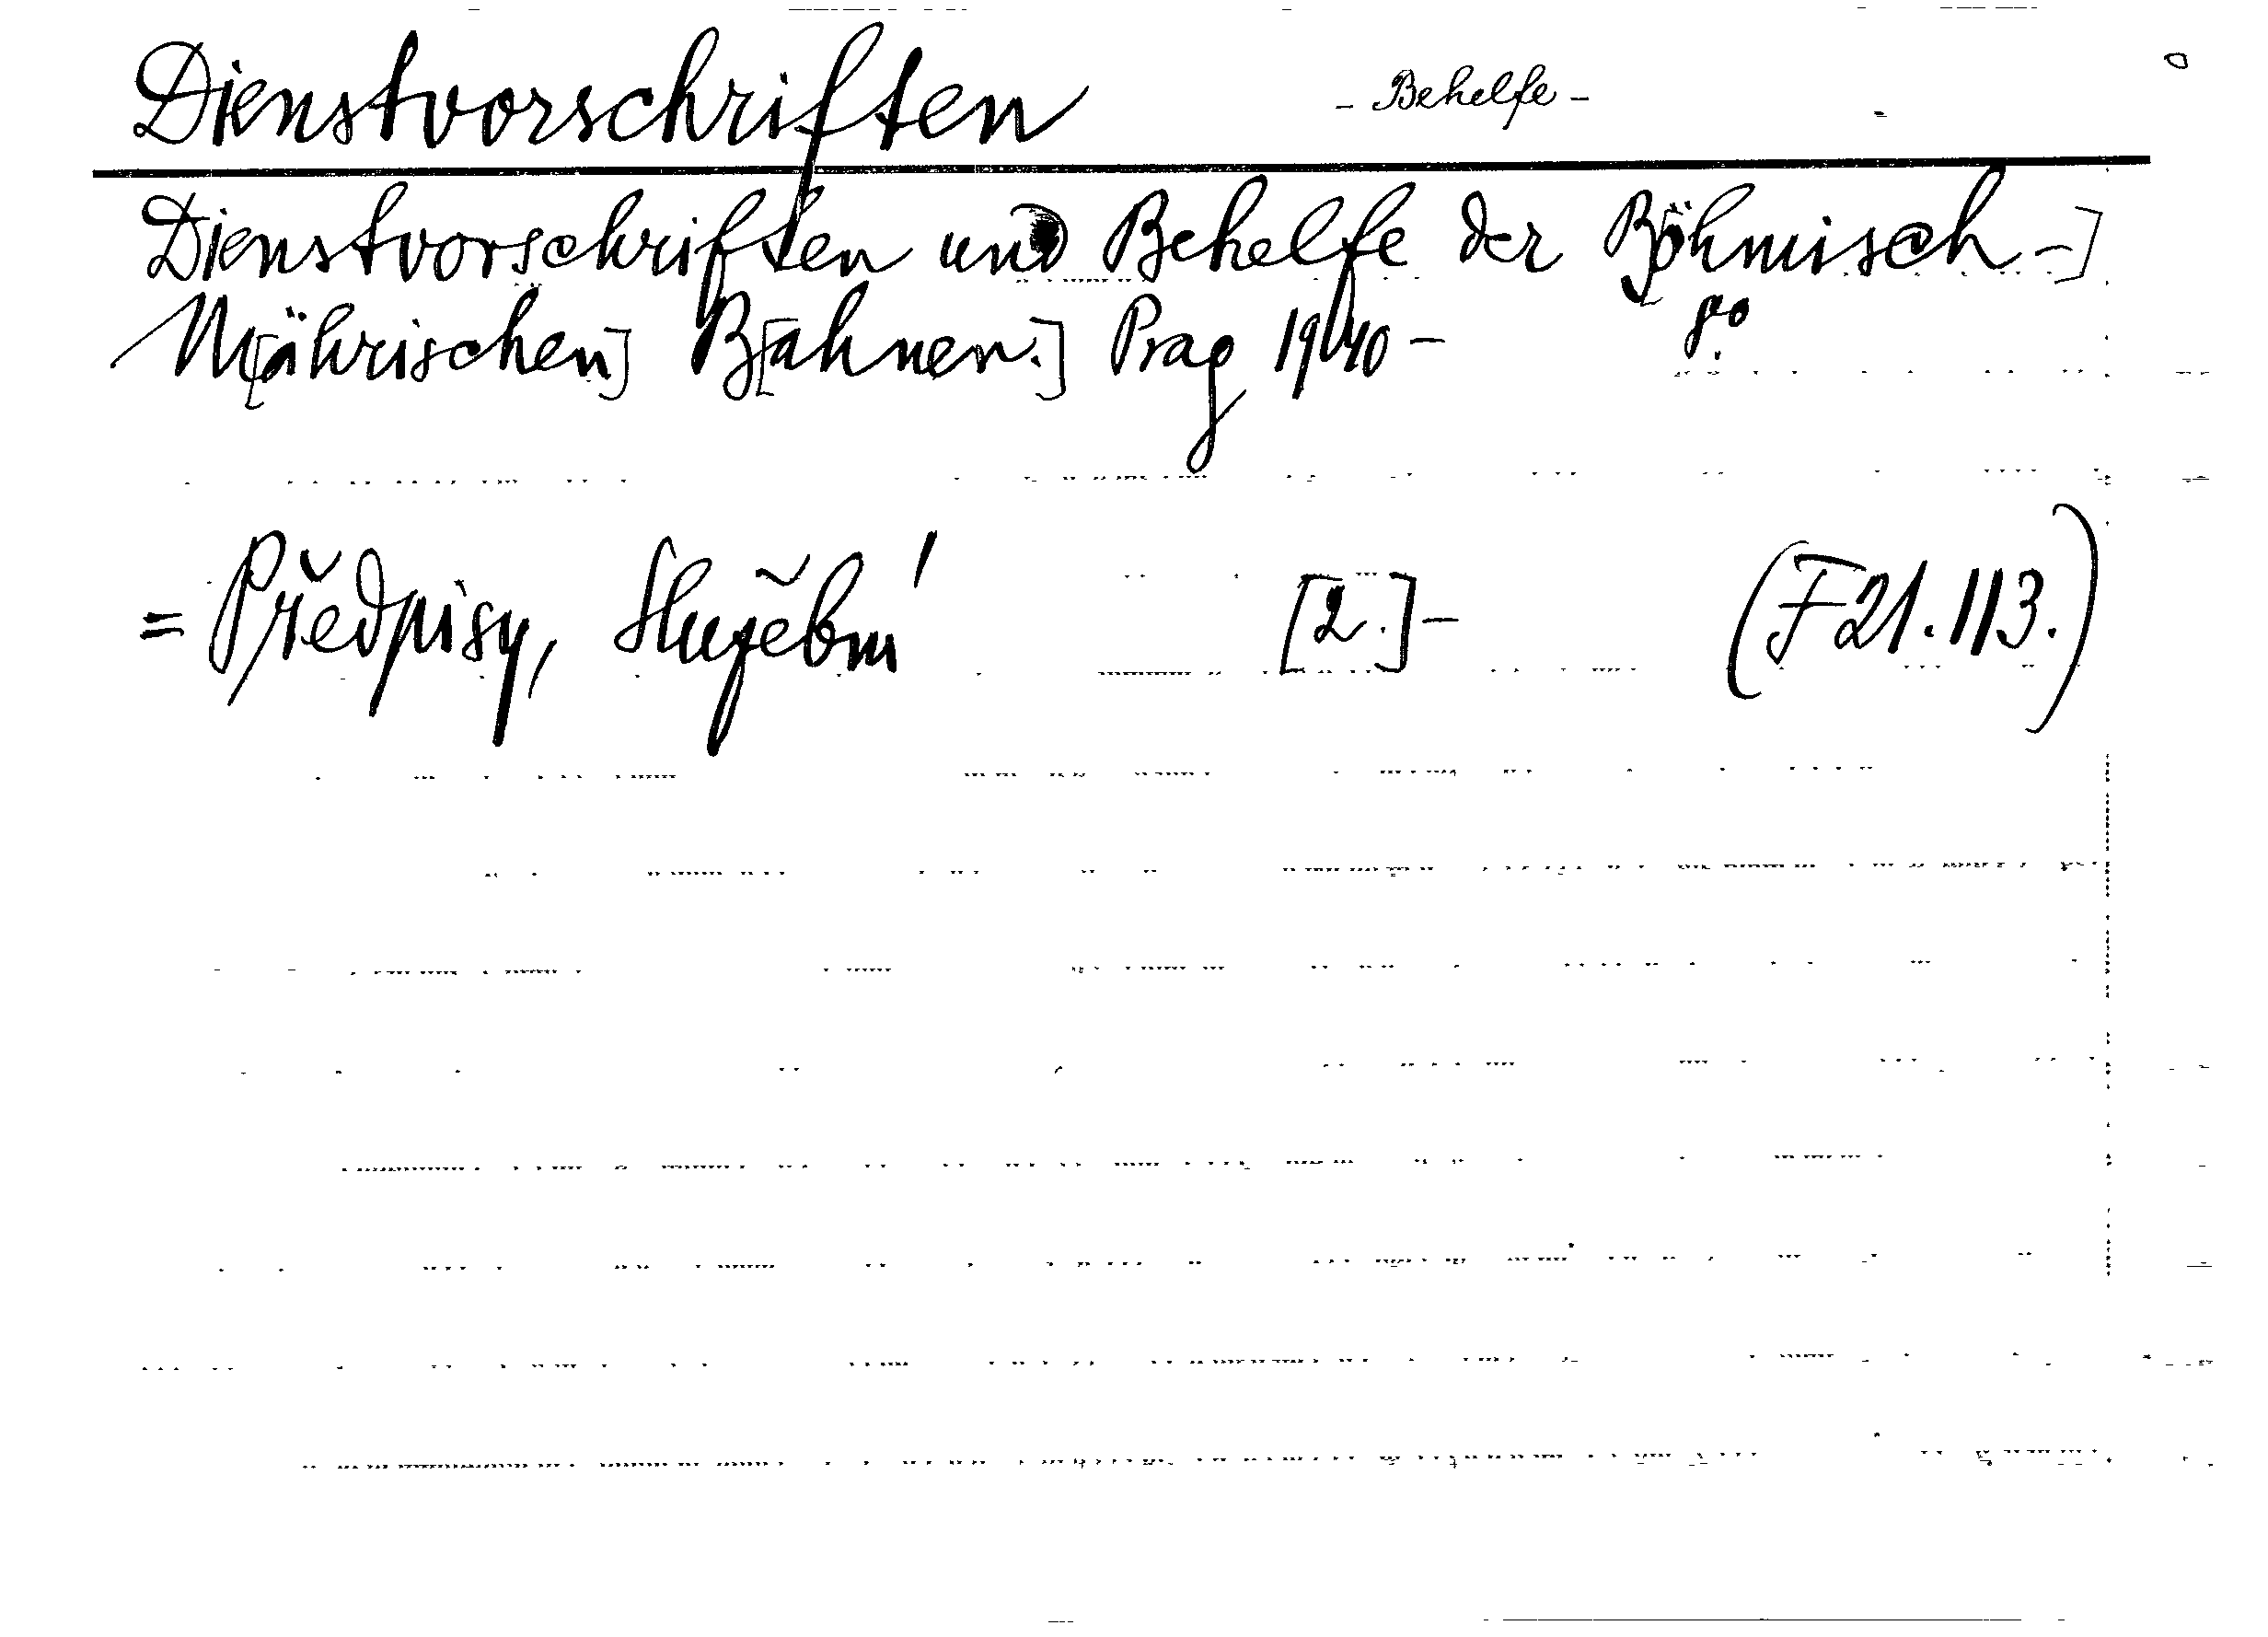 Dienstvorschriften - Behelfe -
Dienstvorschriften und Behelfe der B[öhmisch-]
M[ährischen] B[ahnen.] Prag 1940 - 8°.
= Předpisy, služební [2.]- (F 21.113.)